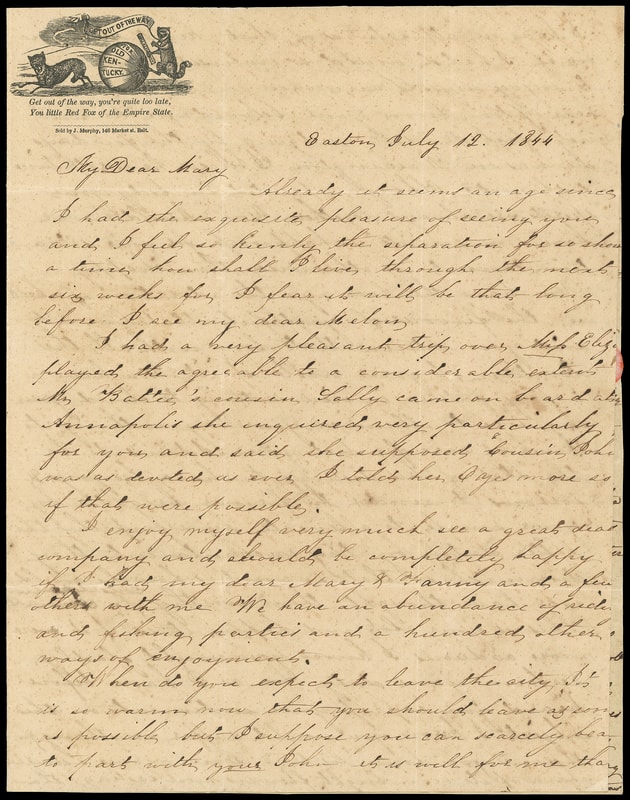 OUT OF THE WAY
OLD
KEN-
TUCKY.
Get out of the way, you're quite too late,
You little Red Fox of the Empire State.
Sold by J. Murphy, 146 Market st. Balt.
Easton, July 12. 1844
My Dear Mary
Already it seems an age since
I had the exquisite pleasure of seeing you
and I feel so keenly the separation for so short
a time how shall I live through the next
six weeks for I fear it will be that long
before I see my dear
I had a very pleasant trip over Miss Eliza
played the agreeable to a considerable extent
Mr cousin Sally came on board at
Annapolis she inquired very particularly
for you and said she supposed "Cousin John
was as devoted as ever I told her O yes more so
if that were possible.
I enjoy myself very much see a great deal
company and should be completely happy
if I had my dear Mary & Fanny and a few
others with me We have an abundance of
and fishing parties and a hundred other
ways of enjoyment.
When do you expect to leave the city It
is so warm now that you should leave as soon
as possible but I suppose you can scarcely bear
to part with your John it is well for me that